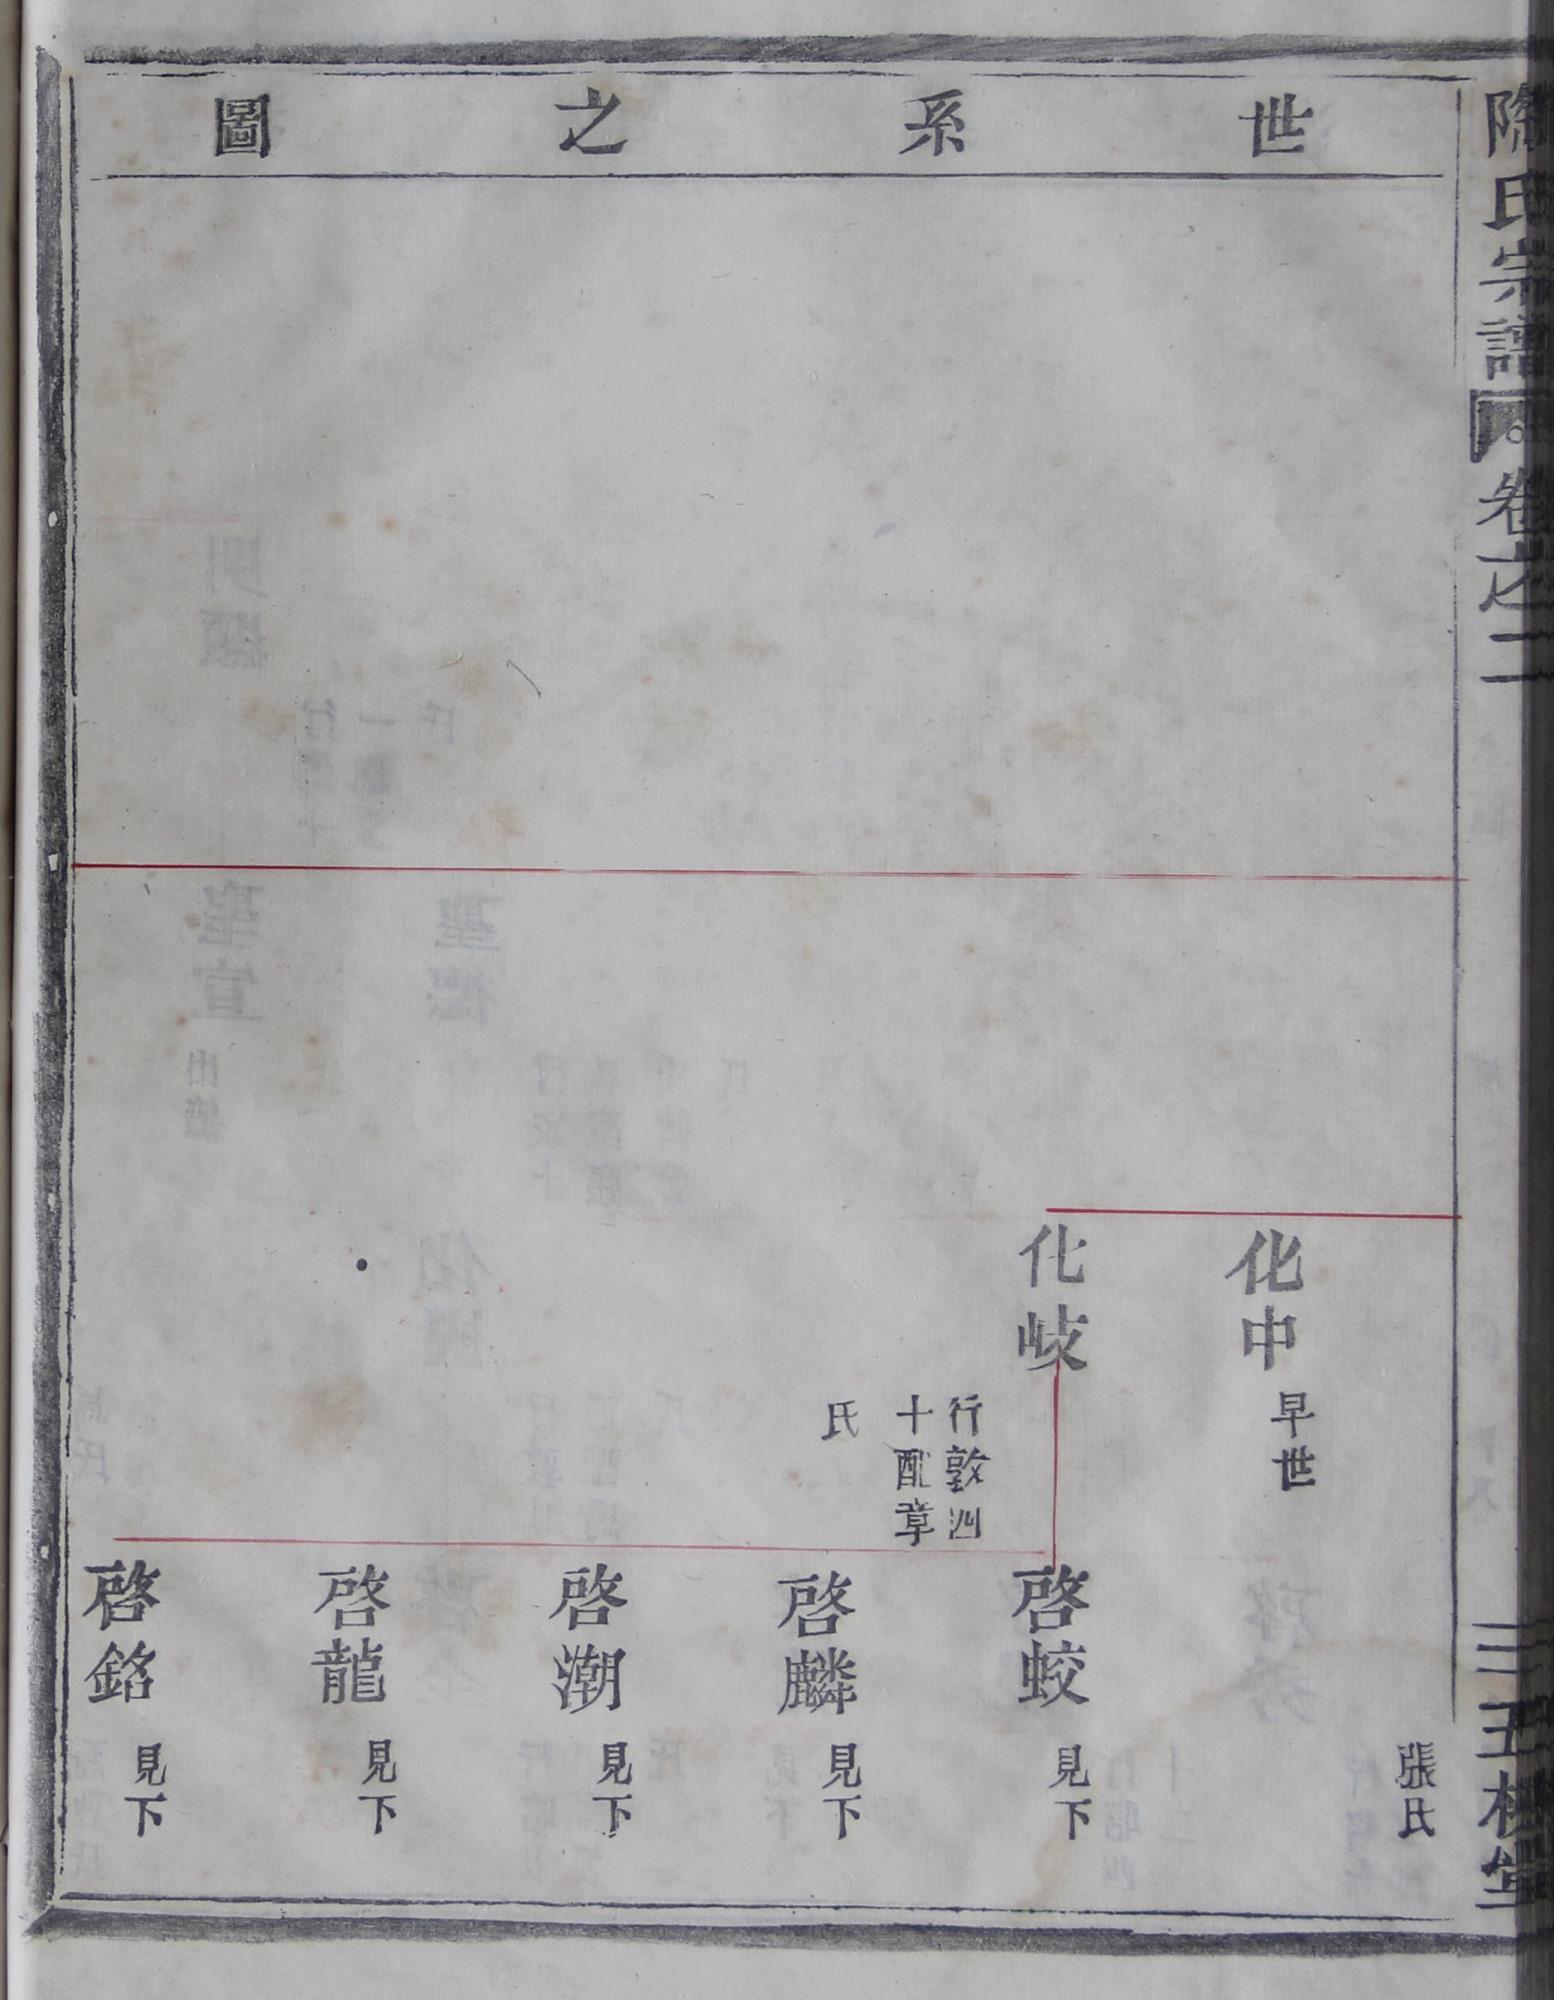 世系之圖
氏宗譜
卷之二
化中
早世
化岐
行敦四
十配章
氏
張氏
啓蛟
見下
啓麟
見下
啓潮
見下
啓龍
見下
啓銘
見下